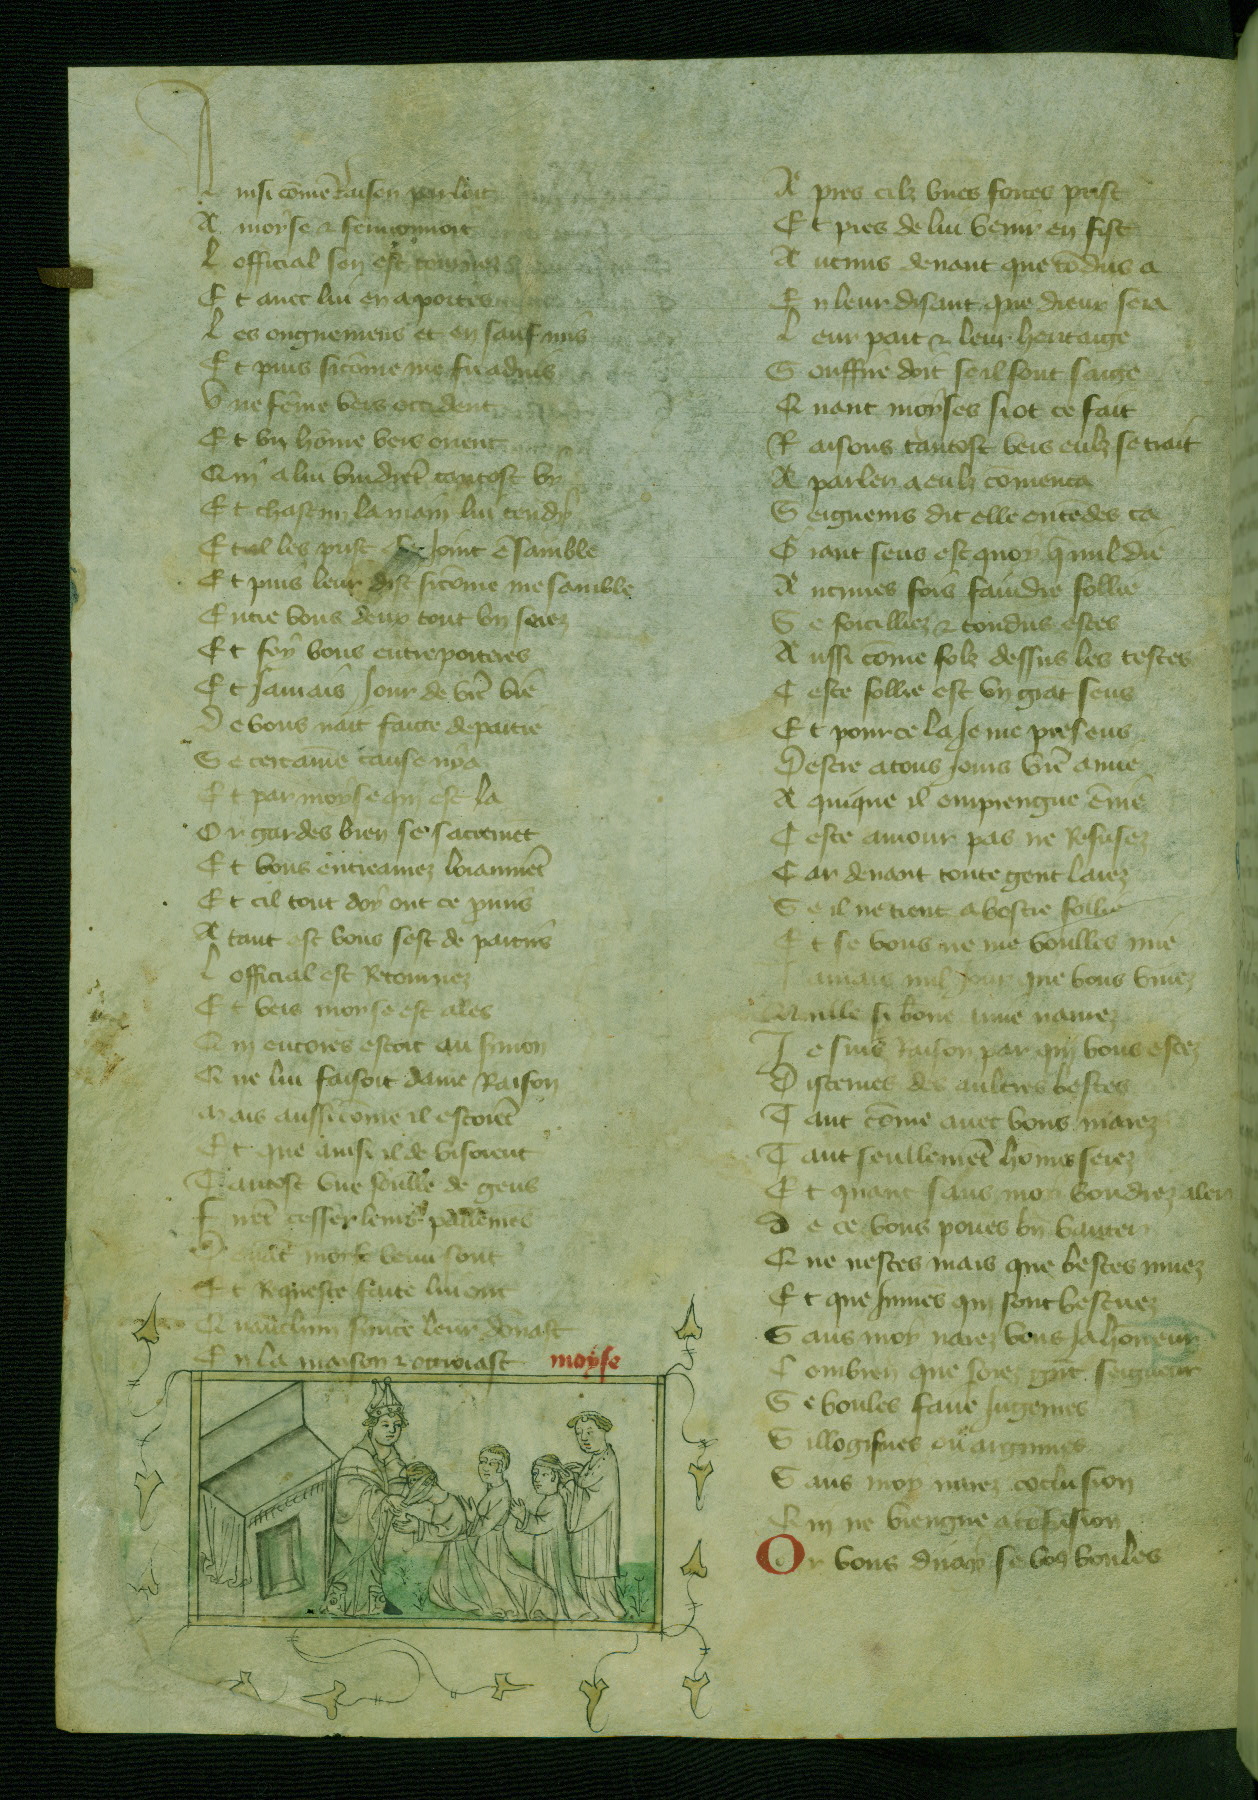 A insi cōme Raison parloit
A moyse & sermonnoit
L official sen est tournez
E t auec lui en a portes
L es ongnemens et en sauf mis
E t puis sicōme me fu aduis
V ne fēme vers occident
E t vn hōme vers orient
Q ui a lui vindrēt tantost vn
E t chascun la main lui tendy
E t il les prist et Joint ēsamble
E t puis leur dist sicōme me samble
E ntre vous deux tout vn serez
E t foy vous entreporteres
E t Jamais Jour de vrē vie
D e vous nait faicte departie
S e certaine cause ny a
E t par moyse qui est la
O r gardes bien se sacremēt
E t vous entreamez loiaumēt
E t cil tout doy ont ce pmis
A tant est vous sest de partis
L official est Retournez
E t vers moyse est ales
Q ui encores estoit au sermon
Q ue lui faisoit dame Raison
M ais aussi come il estoiēt
E t que ainsi il de visoient
T antost vne foulle de gens
F irēt cesser leurs parlemēs
D euāt moyse venu sont
E t Requeste faicte lui ont
Q uaucun seruice leur donast
E n la maison & ottroiast moyse
A pres cilz vnes forces prist
E t pres de lui venir en fist
A ucuns deuant que tōdus a
E n leur disant que dieux sera
L eur part & leur heritaige
S ouffire doit se il sont saige
Q uant moyses si ot ce fait
R aisons tantost vers eulz se trait
A parler a eulz cōmenca
S eigneurs dit elle entēdes ca
G rant sens est quoy q̄ nul die
A ucunes fois faindre follie
S e forcilliez & tondus estes
A ussi cōme folz dessus les testes
C este follie est vn grāt sens
E t pour ce la Je me presens
D estre a tous Jours vrē amie
A quique il emprengne ēnie
C este amour pas ne Refusez
C ar deuant toute gent larez
S e il ne tient a vostre follie
E t se vous ne me voulles mie
J amais nul Jour que vous viuez
N ulle si bone amie narez
J e suis Raison par qui vous estez
D iscernes des aultres bestes
T ant cōme auec vous marez
T ant seullemēt homs serez
E t quant sans moy vourdrez aler
D e ce vous poues bn̄ vanter
Q ue nestes mais que bestes muez
E t que Jumēs qui sont vestuez
S ans moy narez vous Ja honeur
C ombien que soiez grāt seigneur
S e voules faire Jugemēs
S illogismes ou argumēs
S ans moy narez cōclusion
Q ui ne viengne a cōfusion
O r vous diray se vos voules